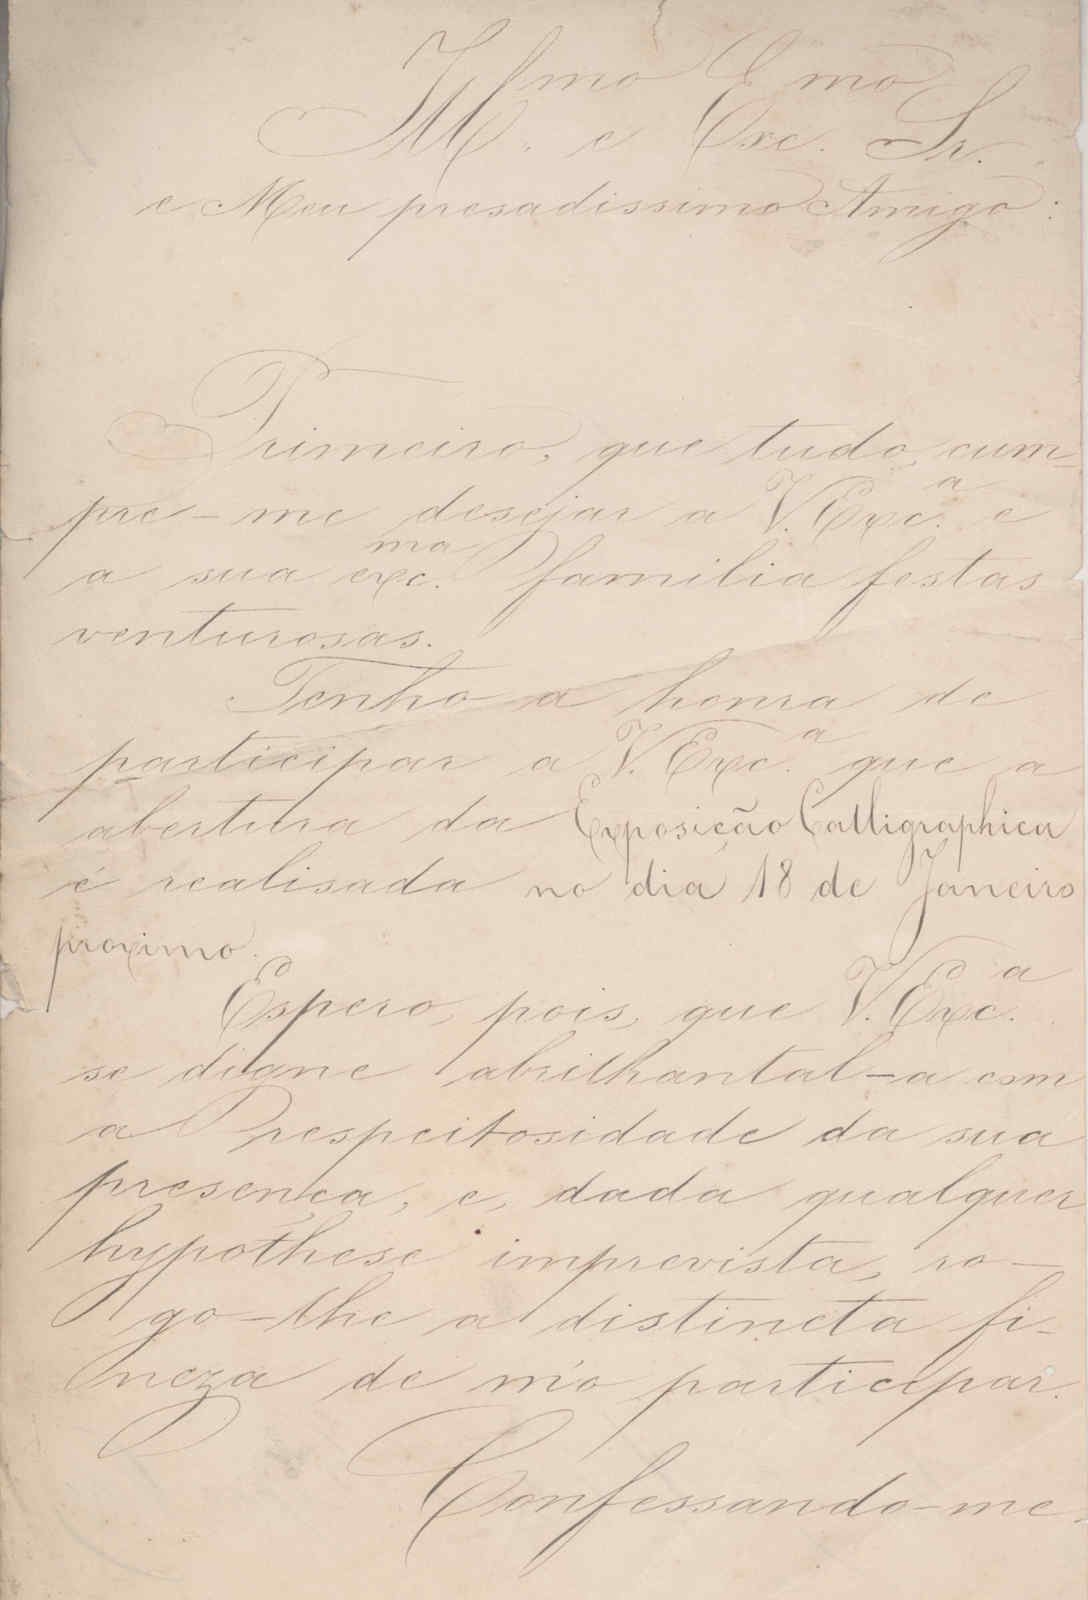 Ill.mo e Exc.mo Sr.
e Meu presadissimo Amigo:
Primeiro, que tudo, cum-
pre-me desejar a V. Exc.a e
a sua exc.ma familia festas
venturosas.
Tenho a honra de
participar a V. Exc.a que a
abertura da Exposição Calligraphica
é realisada no dia 18 de Janeiro
proximo.
Espero, pois, que V. Exc.a
se digne abrilhantal-a com
a respeitosidade da sua
presença, e, dada qualquer
hypothese imprevista, ro-
go-lhe a distincta fi-
neza de m'o participar.
Confessando-me,